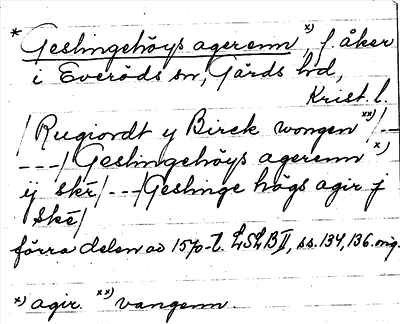 * Geslingehöys agerenn x), f. åker
i Everöds sn, Gärds hd,
Krist. l.
/ Rugiordt y Birck wongen xx) / --
---/ Geslingehöys agerenn x)
ij skē / --- / Geslinge högs agir j
skē /
förra delen av 1570-t. LSLB II, ss. 134, 136. mig.
x) agir. xx) vangenn.